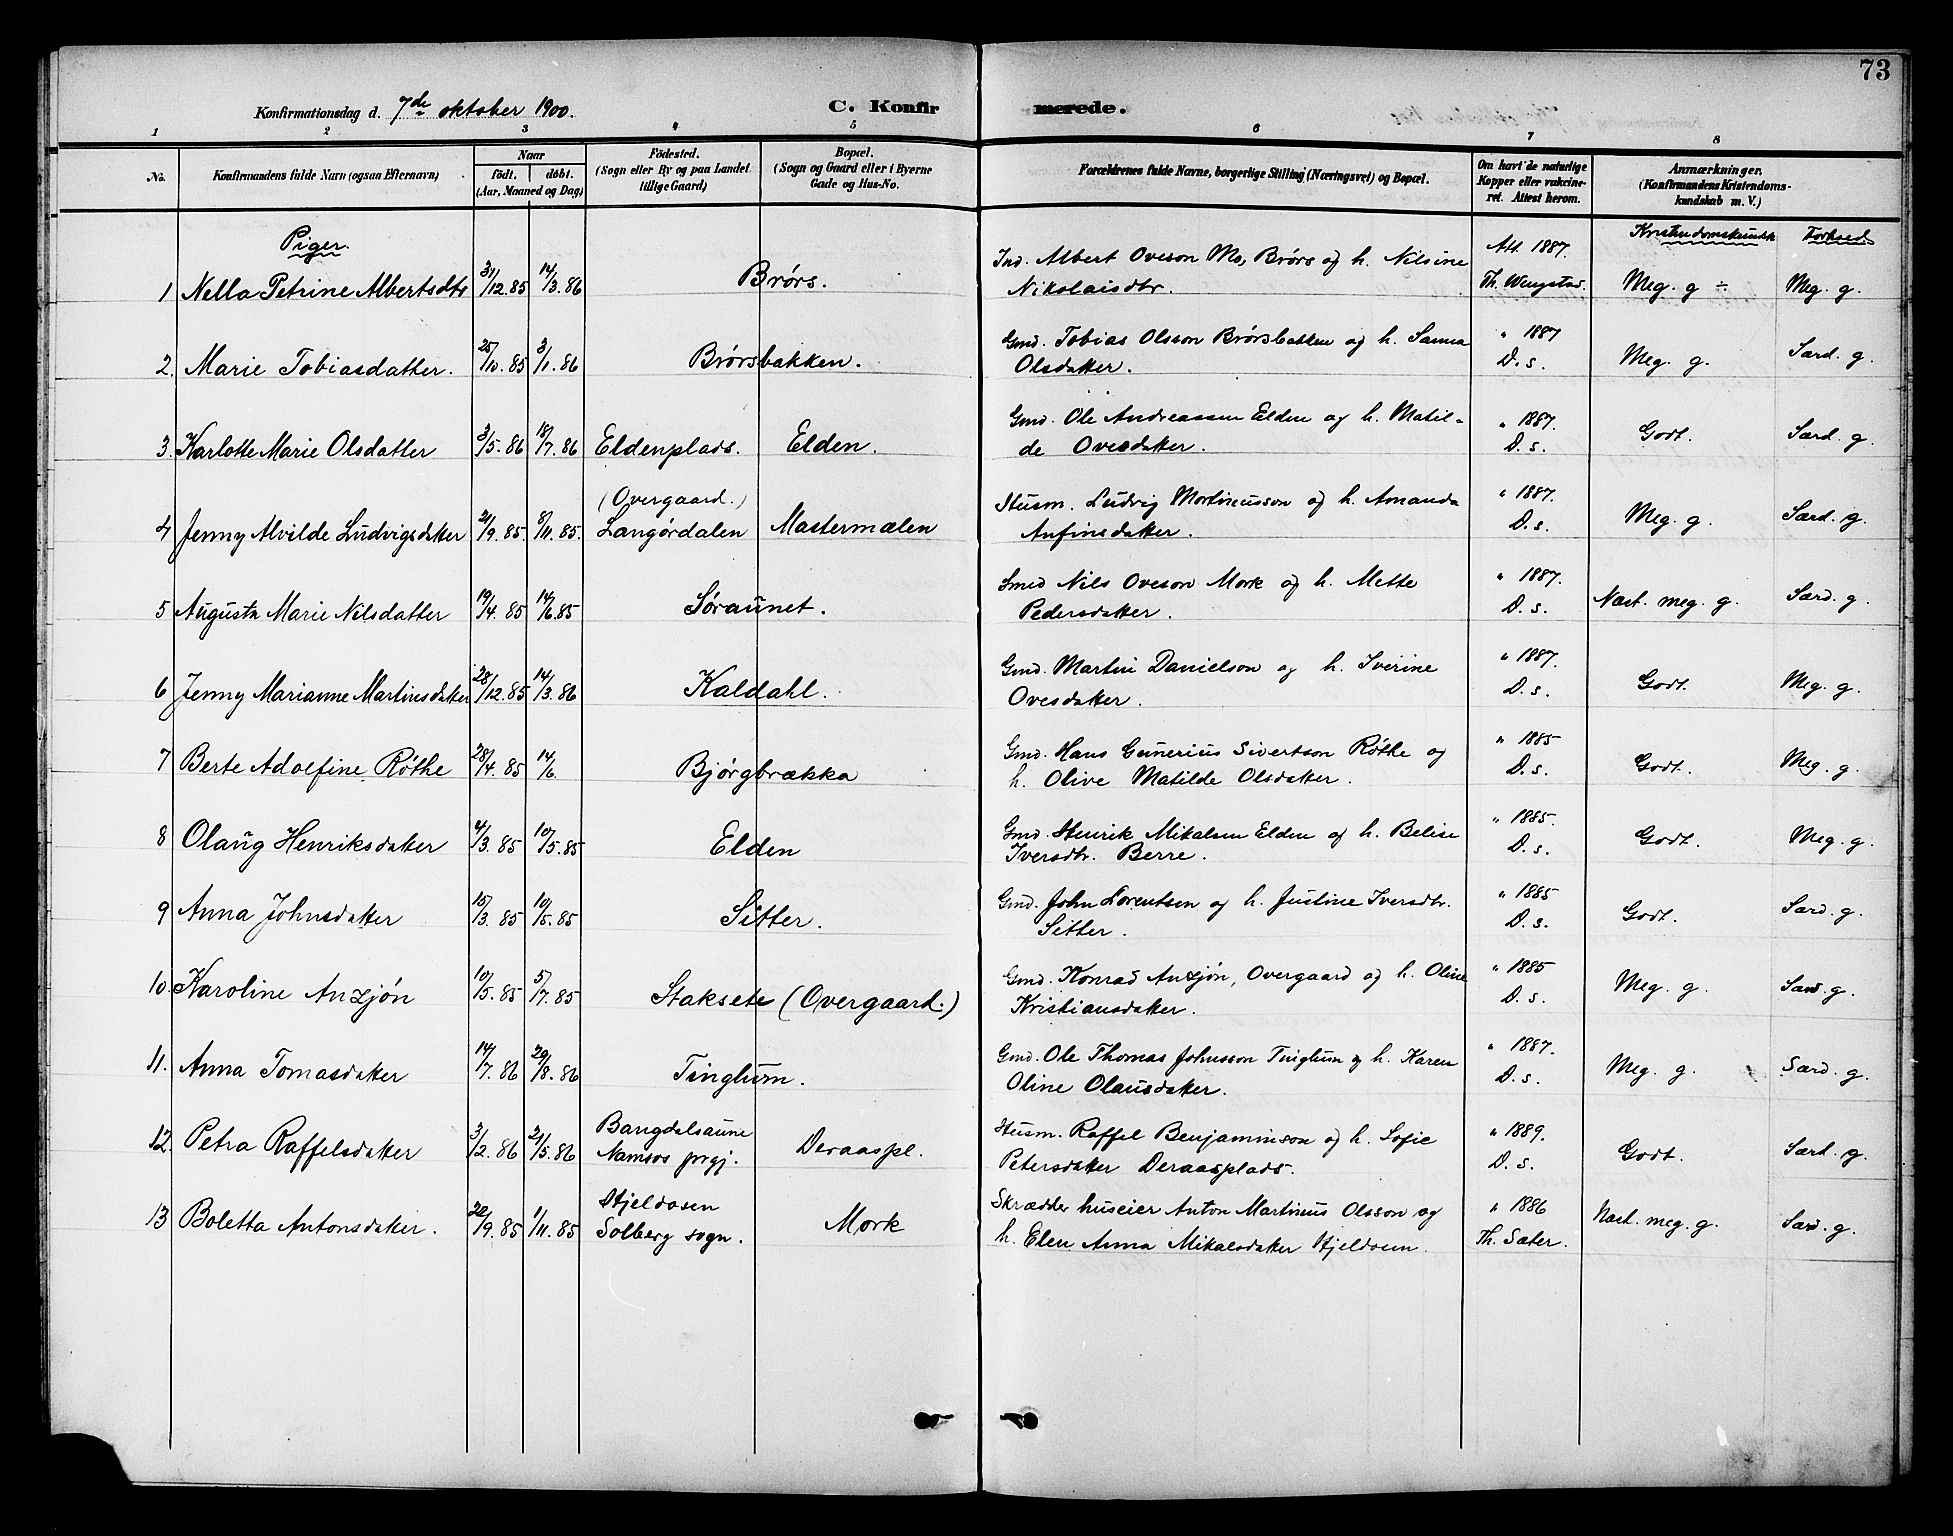 73
Konfirmationsdag d. 7de oktober 1900.
C. Konfirmerede.
1 2 3 4 5 6 7 8
No.
Konfirmandens fulde Navn (ogsaa Efternavn)
Naar
födt. döbt.
(Aar, Maaned og Dag)
Födested.
(Sogn eller By og paa Landet
tillige Gaard)
Bopæl.
(Sogn og Gaard eller i Byerne
Gade og Hus-No.
Forældrenes fulde Navne, borgerlige Stilling (Næringsvei) og Bopæl.
Om havt de naturlige
Kopper eller vakcine-
ret. Attest herom.
Anmærkninger.
(Konfirmandens Kristendoms-
kundskab m. V.)
Piger.
Kristendomskundsk Forhold
1 Nella Petrine Albertsdtr 31/12.85 14/3.86 Brørs. Ind. Albert Oveson Mo, Brørs og h. Nilsine
Nikolaisdtr. Att. 1887.
Th. Wengstad. Meg. g ÷ Meg. g.
2. Marie Tobiasdatter. 25/10.85 3/1.86 Brørsbakken. Gmd. Tobias Olsson Brørsbakken og h. Sanna
Olsdatter. " 1887
D. s. Meg. g. Særd. g.
3. Karlotte Marie Olsdatter 3/5.86 18/7.86 Eldenplads. Elden. Gmd. Ole Andreassen Elden og h. Matil-
de Ovesdatter. " 1887.
D. s. Godt. Særd. g.
4 Jenny Alvilde Ludvigsdatter 21/9.85 8/11.85. (Overgaard.)
Langørdalen Mastermælen Husm. Ludvig Mortinusson og h. Amanda
Anfinsdatter. " 1887.
D. s. Meg. g. Særd. g.
5 Augusta Marie Nilsdatter 19/4.85 14/6.85 Søraunet. Smed Nils Oveson Mork og h. Mette
Pedersdatter. " 1887.
D. s. Næst. meg. g. Særd. g.
6 Jenny Marianne Martinsdatter 28/12.85 14/3.86 Kaldahl. Gmd. Martin Danielson og h. Iverine
Ovesdatter. " 1887.
D. s. Godt. Meg. g.
7 Berte Adolfine Röthe 28/4.85 14/6. Bjørgbrækka Gmd. Hans Gunerius Sivertson Röthe og
h. Olive Matilde Olsdatter. " 1885
D. s. Godt. Meg. g.
8 Olaug Henriksdatter 4/3.85 10/5.85 Elden Gmd. Henrik Mikalsen Elden og h. Belise
Iversdtr. Berre. " 1885.
D. s. Godt. Meg. g.
9 Anna Johnsdatter 15/3.85 10/5.85 Sitter. Gmd. John Lorentsen og h. Justine Iversdtr.
Sitter. " 1885
D. s. Godt. Særd. g.
10. Karoline Anzjøn 10/5.85 5/7.85 Staksete (Overgaard.) Gmd. Konrad Anzjøn, Overgaard og h. Oline
Kristiansdatter. " 1885
D. s. Meg. g. Særd. g.
11. Anna Tomasdatter 14/7.86 29/8.86 Tinglum. Gmd. Ole Thomas Johnsson Tinglum og h. Karen
Oline Olausdatter. " 1887.
D. s. Meg. g. Særd. g.
12. Petra Raffelsdatter 3/2.86 2/5.86 Bangdalsaune
Namsos prgj. Deraaspl. Husm. Raffel Benjaminson og h. Sofie
Petersdatter Deraasplads. " 1889.
D. s. Godt. Særd. g.
13 Boletta Antonsdatter. 22/9.85 1/11.85 Hjeldosen
Solberg sogn. Mork Skrædder huseier Anton Martinus Olsson og
h. Elen Anna Mikalsdatter Hjeldosen. " 1886
Th. Sæter. Næst. meg. g. Særd. g.